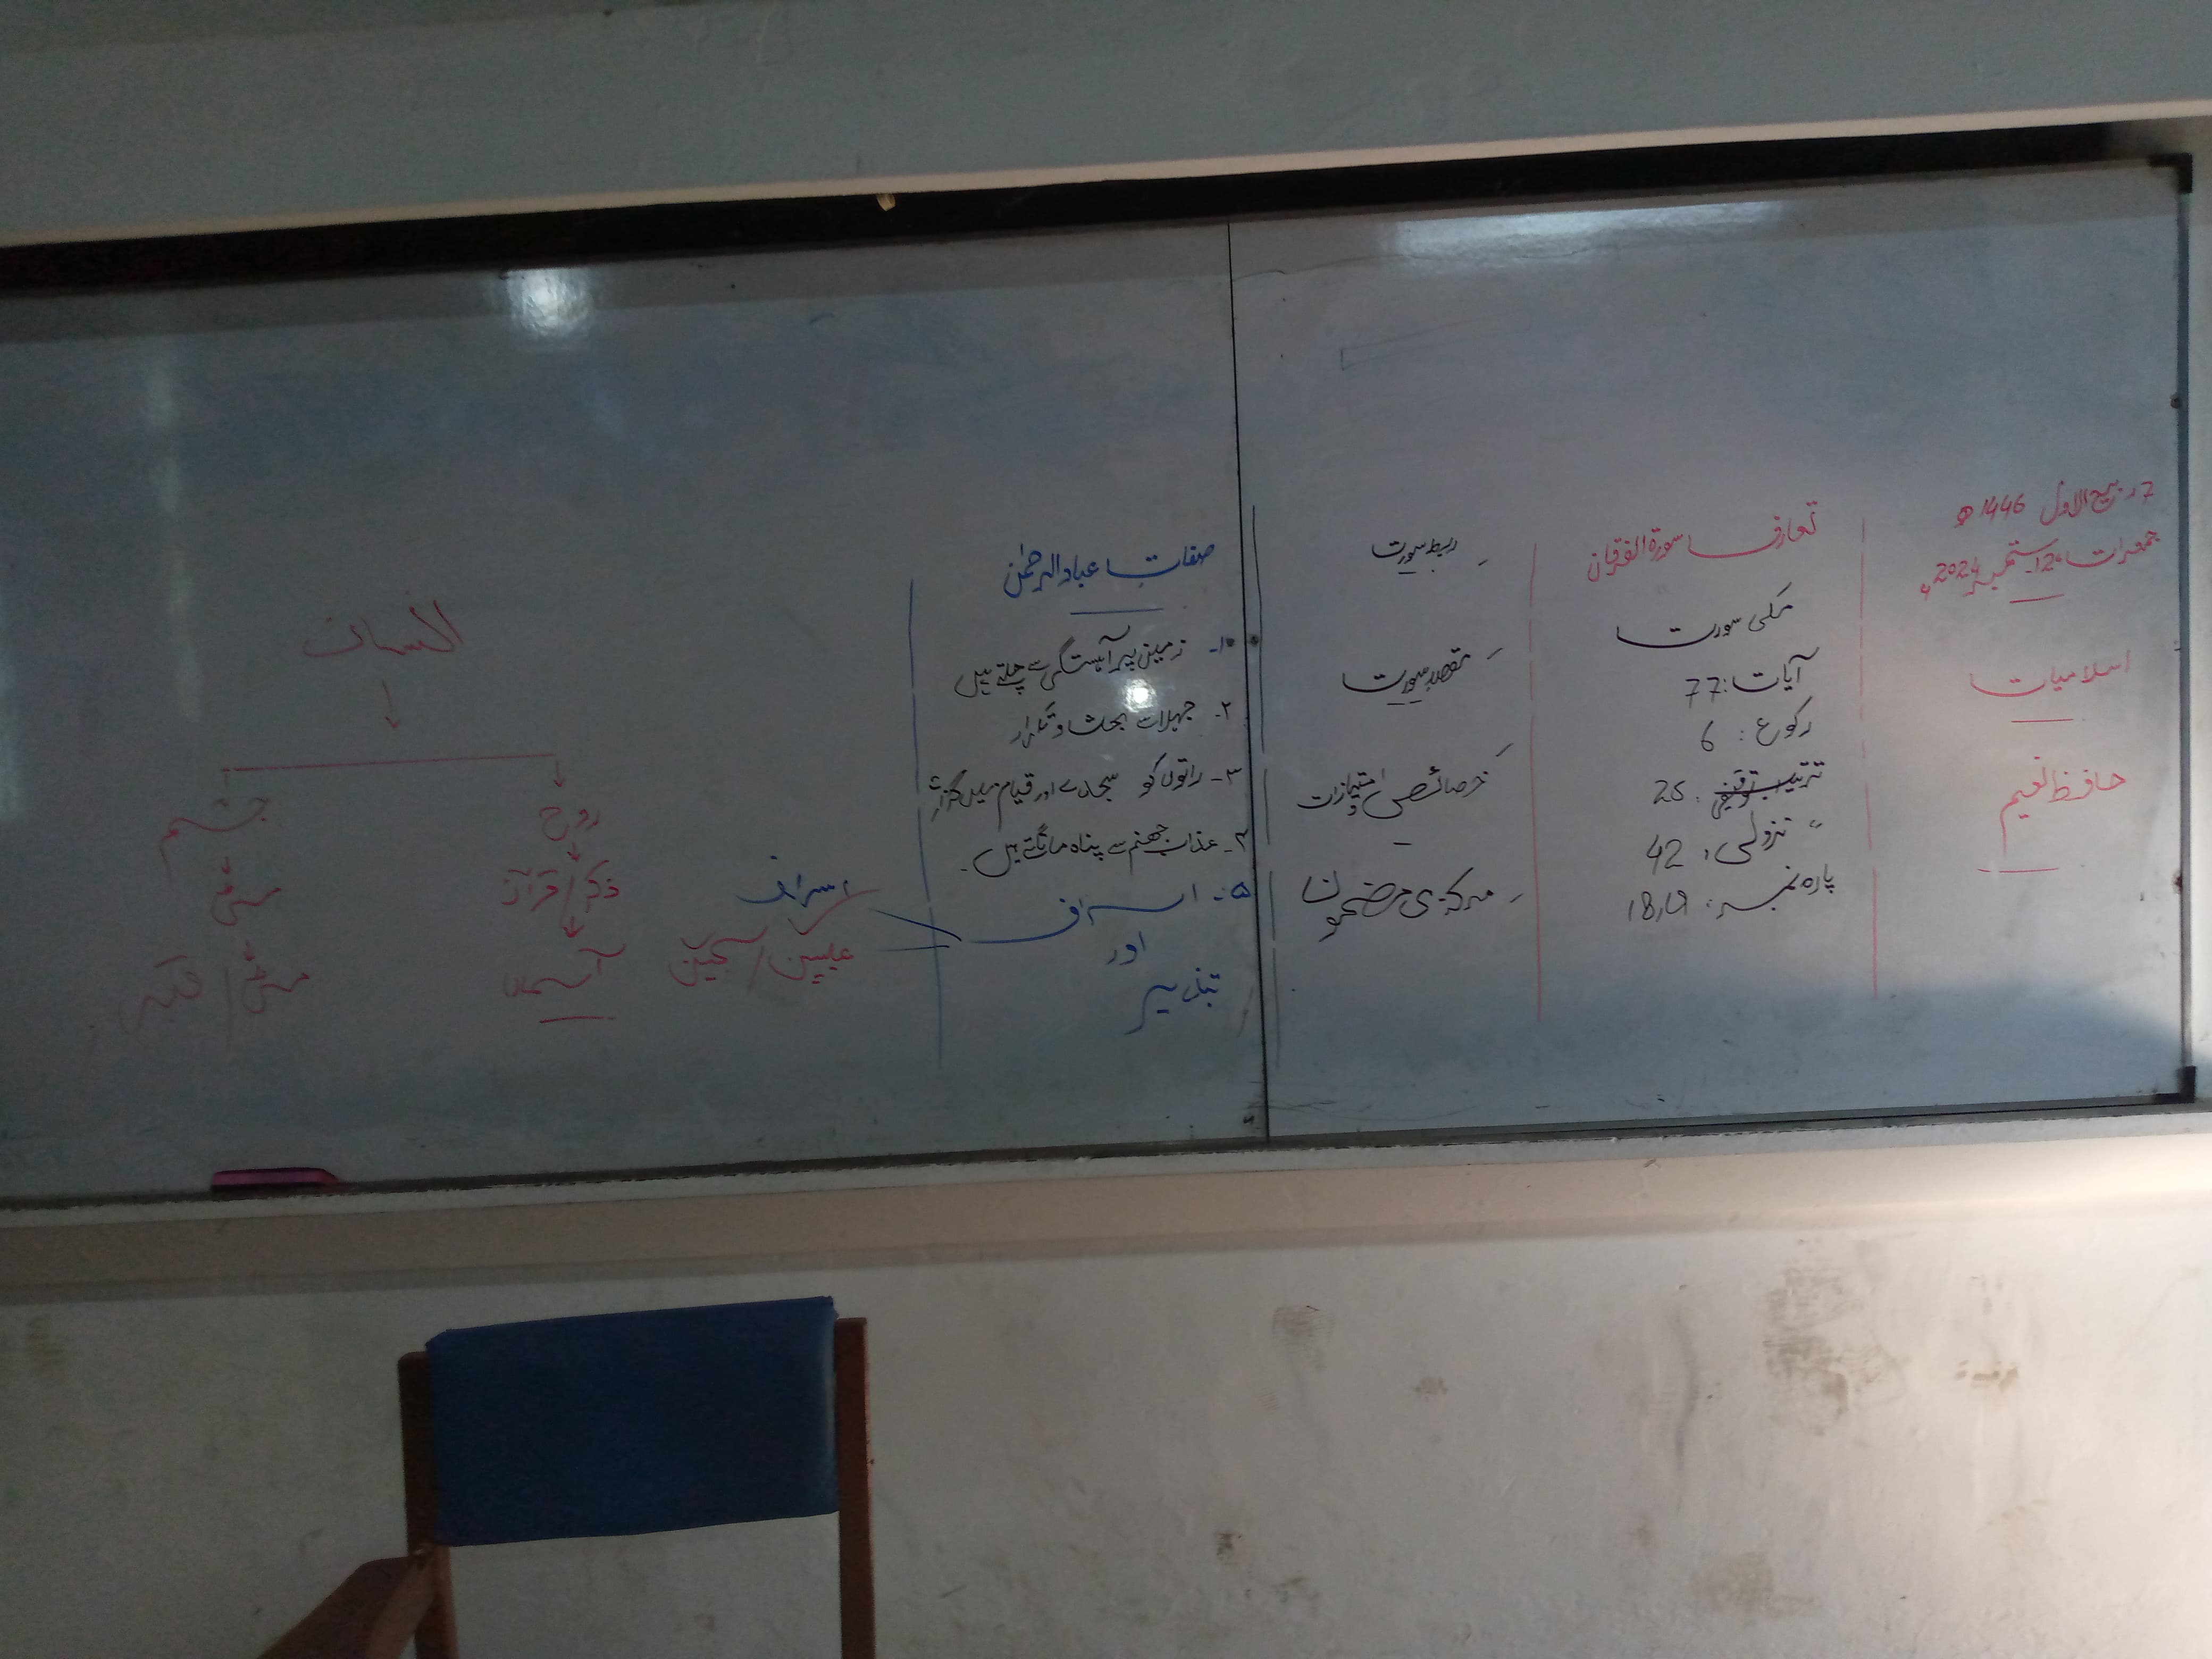 7 ربیع الاول 1446ھ
جمعرات، 12 ستمبر 2024ء
اسلامیات
حافظ نعیم
تعارف سورۃ الفرقان
مکی سورت
آیات: 77
رکوع: 6
ترتیب توقیفی: 25
〃 نزولی: 42
پارہ نمبر: 18,19
ربط سورت
مقصد سورت
خصائص و امتیازات
مرکزی مضمون
صفات عباد الرحمٰن
۱۔ زمین پر آہستگی سے چلتے ہیں
۲۔ جہلا سے بحث و تکرار
۳۔ راتوں کو سجدے اور قیام میں گزارتے
۴۔ عذاب جھنم سے پناہ مانگتے ہیں۔
۵۔ اسراف
اور
تبذیر
اسراف
علیین / سجین
الانسان
روح
ذکر / قرآن
آسمان
جسم
مٹی
مٹی / قبر